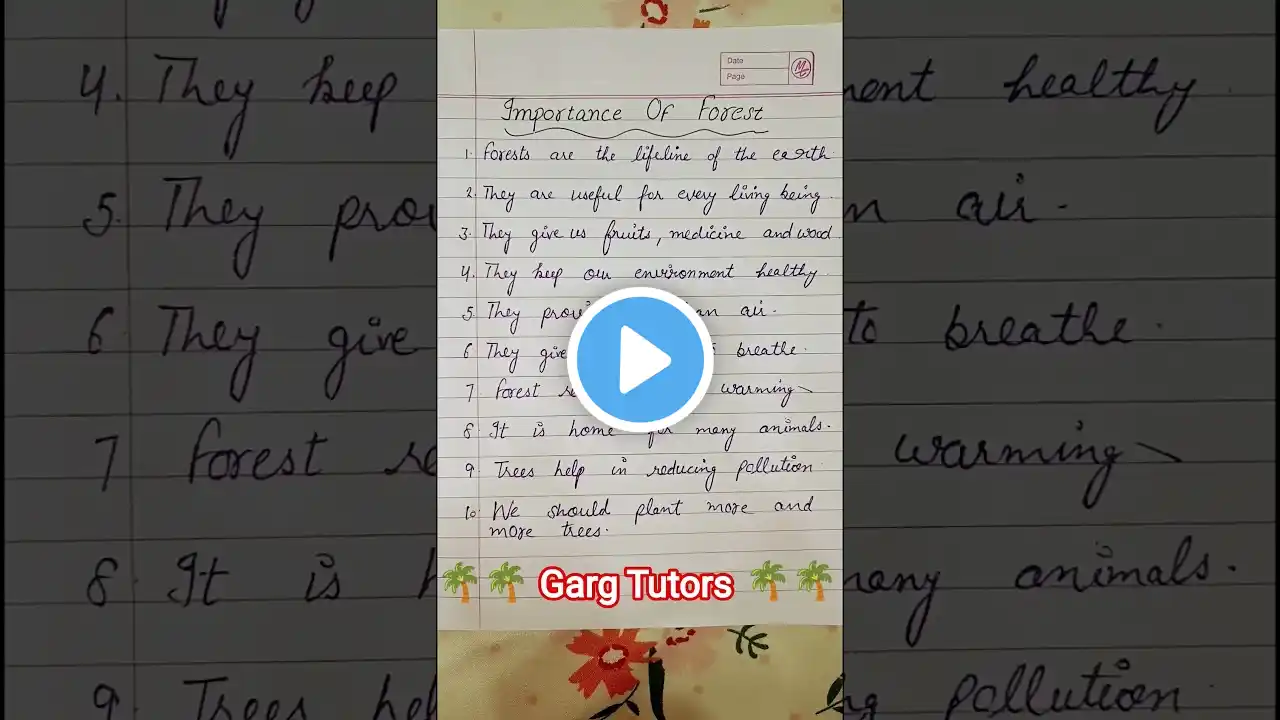 Date
Page
Importance Of Forest
1. Forests are the lifeline of the earth.
2. They are useful for every living being.
3. They give us fruits, medicine and wood
4. They keep our environment healthy.
5. They air.
6 They give to breathe.
7 Forest warming
8 It is home for many animals.
9 Trees help in reducing pollution
10 We should plant more and
more trees.
Garg Tutors